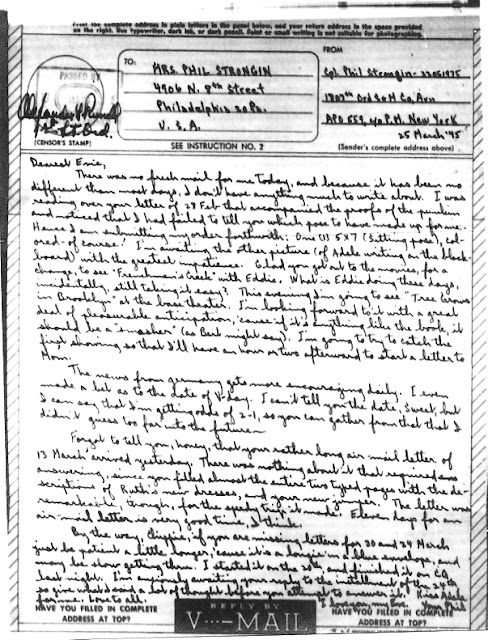 Print the complete address in plain letters in the panel below, and your return address in the space provided
on the right. Use typewriter, dark ink, or dark pencil. Faint or small writing is not suitable for photographing.
PASSED BY
(CENSOR'S STAMP)
TO:
MRS. PHIL STRONGIN
4906 N. 8th Street
Philadelphia 20 Pa.
U.S.A.
SEE INSTRUCTION NO. 2
FROM
Cpl. Phil Strongin - 
APO 559, % P.M. New York
25 March '45
(Sender's complete address above)
Dearest Evie,
There was no fresh mail for me today, and because it has been no
different than most days, I don't have anything much to write about. I was
reading over your letter of 28 Feb that accompanied the proofs of the punkin
and noticed that I had failed to tell you which pose to have made up for me.
Hence I am submitting my order forthwith: One (1) 5x7 (sitting pose), col-
ored - of course! I'm awaiting the other picture (of Adele writing on the black-
board) with the greatest impatience. Glad you got out to the movies, for a
change, to see "Frenchman's Creek" with Eddie. What is Eddie doing these days,
incidentally, still taking it easy? This evening I'm going to see "Tree Grows
in Brooklyn" at the base theater. I'm looking forward to it with a great
deal of pleasurable anticipation, 'cause if it's anything like the book, it
should be a "smasher" (as Bert might say). I'm going to try to catch the
first showing so that I'll have an hour or two afterward to start a letter to
Mom.
The news from Germany gets more encouraging daily. I even
made a bet as to the date of V-day. I can't tell you the date, Sweet, but
I can say that I'm getting odds of 2-1, so you can gather from that that I
didn't guess too far into the future—
Forgot to tell you, honey, that your rather long air mail letter of
13 March arrived yesterday. There was nothing about it that required an
answering, since you filled almost the entire two typed pages with the de-
scriptions of Ruth's new dresses, and your new jumper. The letter was
remarkable, though, for the speedy trip it made. Eleven days for an
air-mail letter is very good time, I think.
By the way, Chippie, if you are missing letters for 20 and 24 March
just be patient a little longer, 'cause it's a longie in a blue envelope, and
may be slow getting there. I started it on the 20th, and finished it on CQ
last night. I'm anxiously awaiting your reply to the intallment of the 24th
so give what I said a lot of thought before you attempt to answer it. Kiss Adele
for me. Love to all. I love you, my Eve. Your Phil
HAVE YOU FILLED IN COMPLETE
ADDRESS AT TOP?
REPLY BY
V···-MAIL
HAVE YOU FILLED IN COMPLETE
ADDRESS AT TOP?